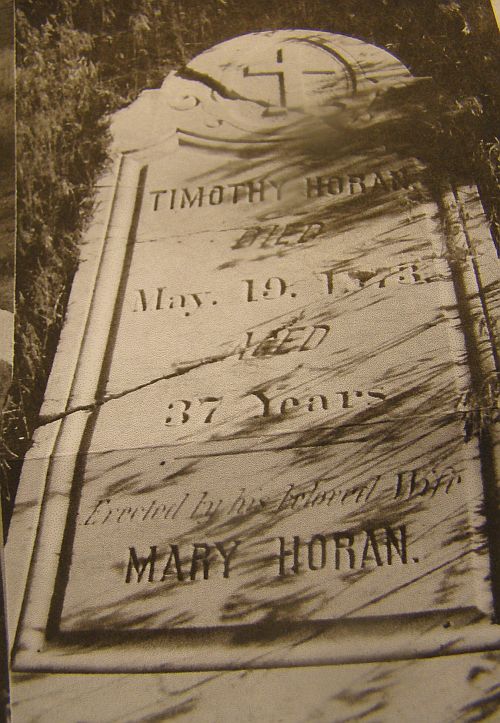 TIMOTHY HORAN.
DIED
May. 19. 1873.
AGED
37 Years
Erected by his beloved Wife
MARY HORAN.